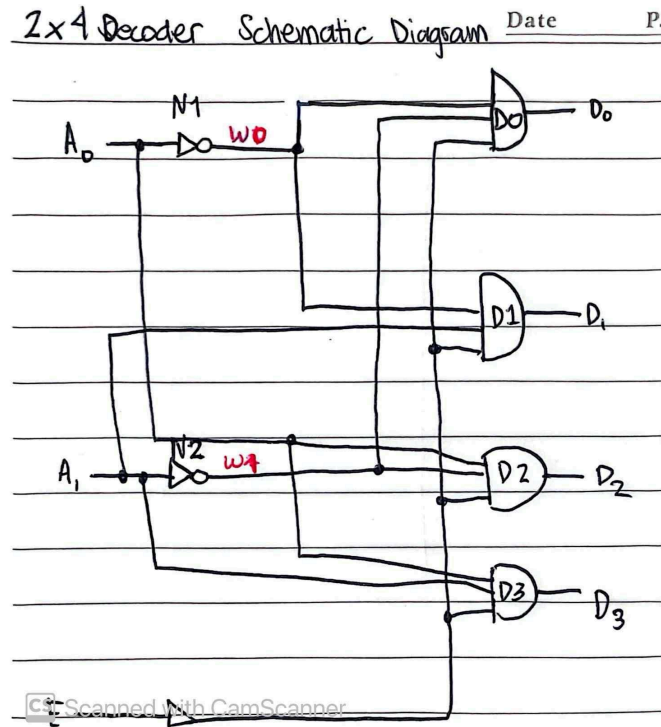 2x4 Decoder Schematic Diagram Date
N1
A0 W0 D0 D0
D1 D1
N2
A1 W1 D2 D2
D3 D3
CS Scanned with CamScanner